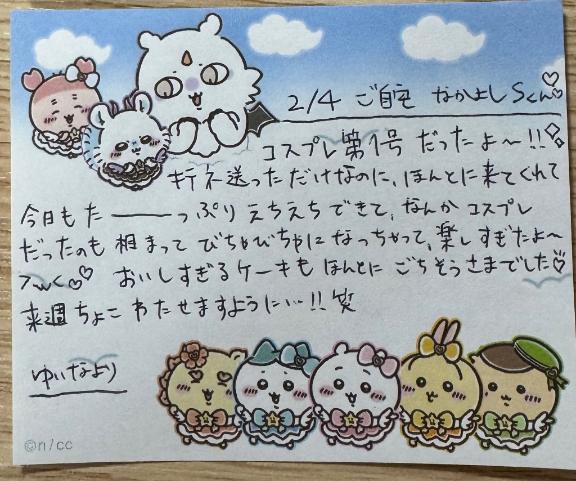 2/4 ご自宅 なかよしSくん♡
コスプレ第1号 だったよ〜!!
ネ送っただけなのに、ほんとに来てくれて
今日もた―――っぷり えちえち できて、なんか コスプレ
だったのも 相まって びちゃびちゃに なっちゃって、楽しすぎたよ〜
おいしすぎる ケーキも ほんとに ごちそうさまでした♡
来週 ちょこ わたせますように…!! 笑
ゆいなより
©n/cc